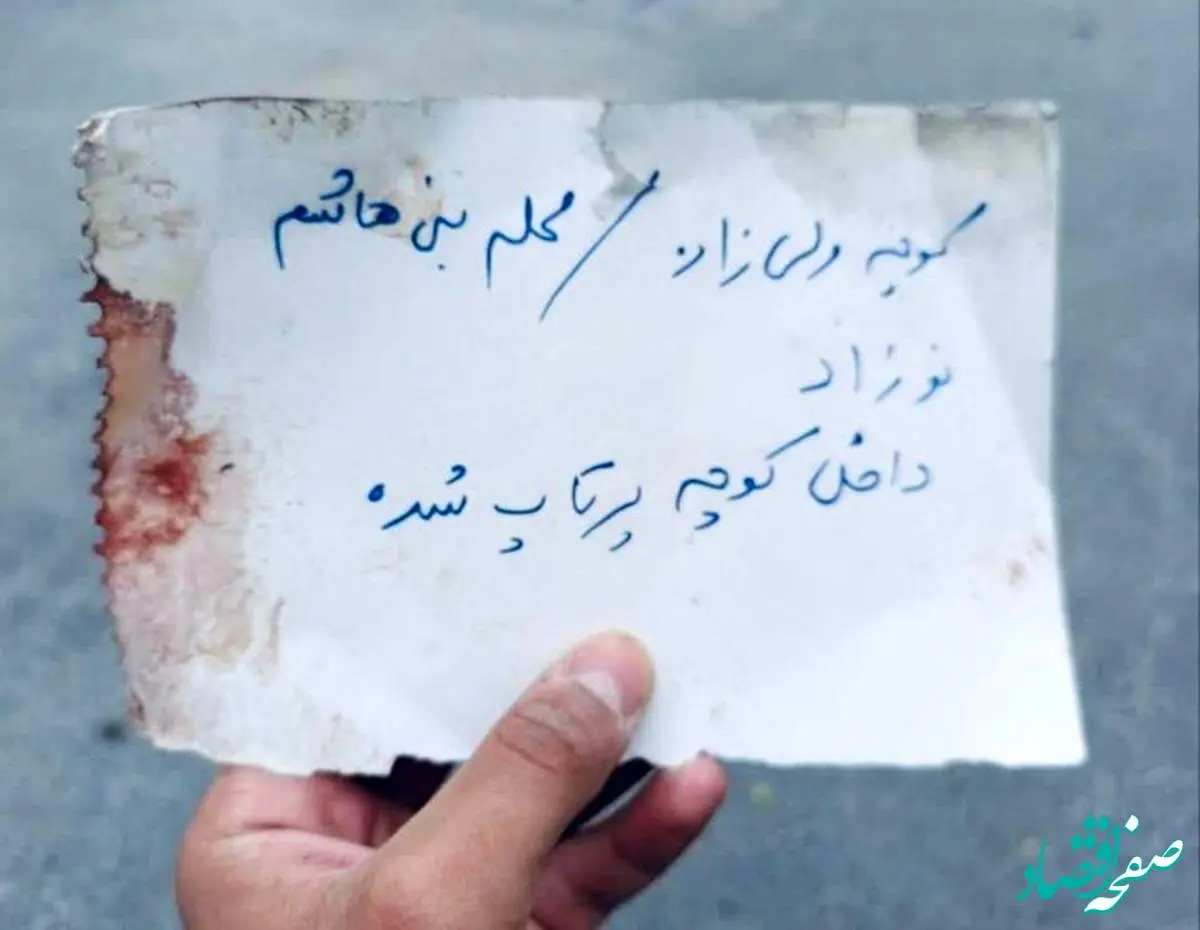 کوچه ولی زاده / محله بنی هاشم
نوزاد
داخل کوچه پرتاب شده
صفحه اقتصاد